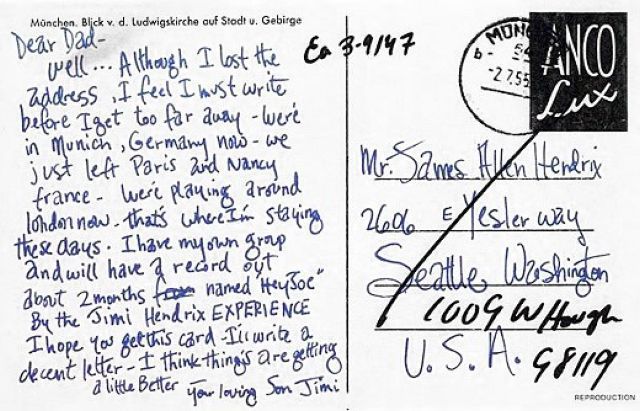 München. Blick v. d. Ludwigskirche auf Stadt u. Gebirge
Dear Dad-
well... Although I lost the
address, I feel I must write
before I get too far away - we're
in Munich, Germany now - we
just left Paris and Nancy
france - we're playing around
london now. that's where I'm staying
these days. I have my own group
and will have a record out
about 2 months named "Hey Joe"
By the Jimi Hendrix EXPERIENCE
I hope you get this card - I'll write a
decent letter - I think things are getting
a little Better
your loving Son Jimi
3-9/47
MÜN
ANCO
Lux
Mr. James Allen Hendrix
2606 E Yesler way
Seattle, Washington
U.S.A.
98119
REPRODUCTION